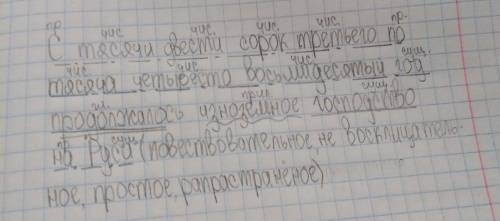 пр. чис. чис. чис. чис. пр.
С тясячи двести сорок третьего по
чис. чис. чис. сущ.
тясяча четыресто восьмидесятый год
гл. прил. сущ.
продолжалось изноземное господство
сущ.
на Руси (повествовательное, не восклицатель-
ное, простое, рапрастранёное)